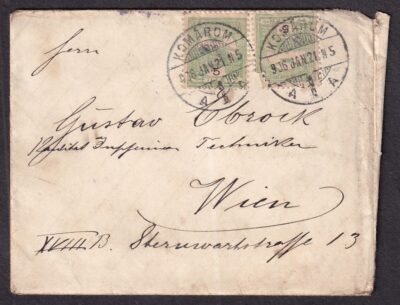 KOMÁROM
916 JAN. 21. N 5
4 A
KOMÁROM
916 JAN. 21. N 5
4 A
Herrn
Gustav
Techniker
Wien
XVIII B. Sternwartstrasse 13